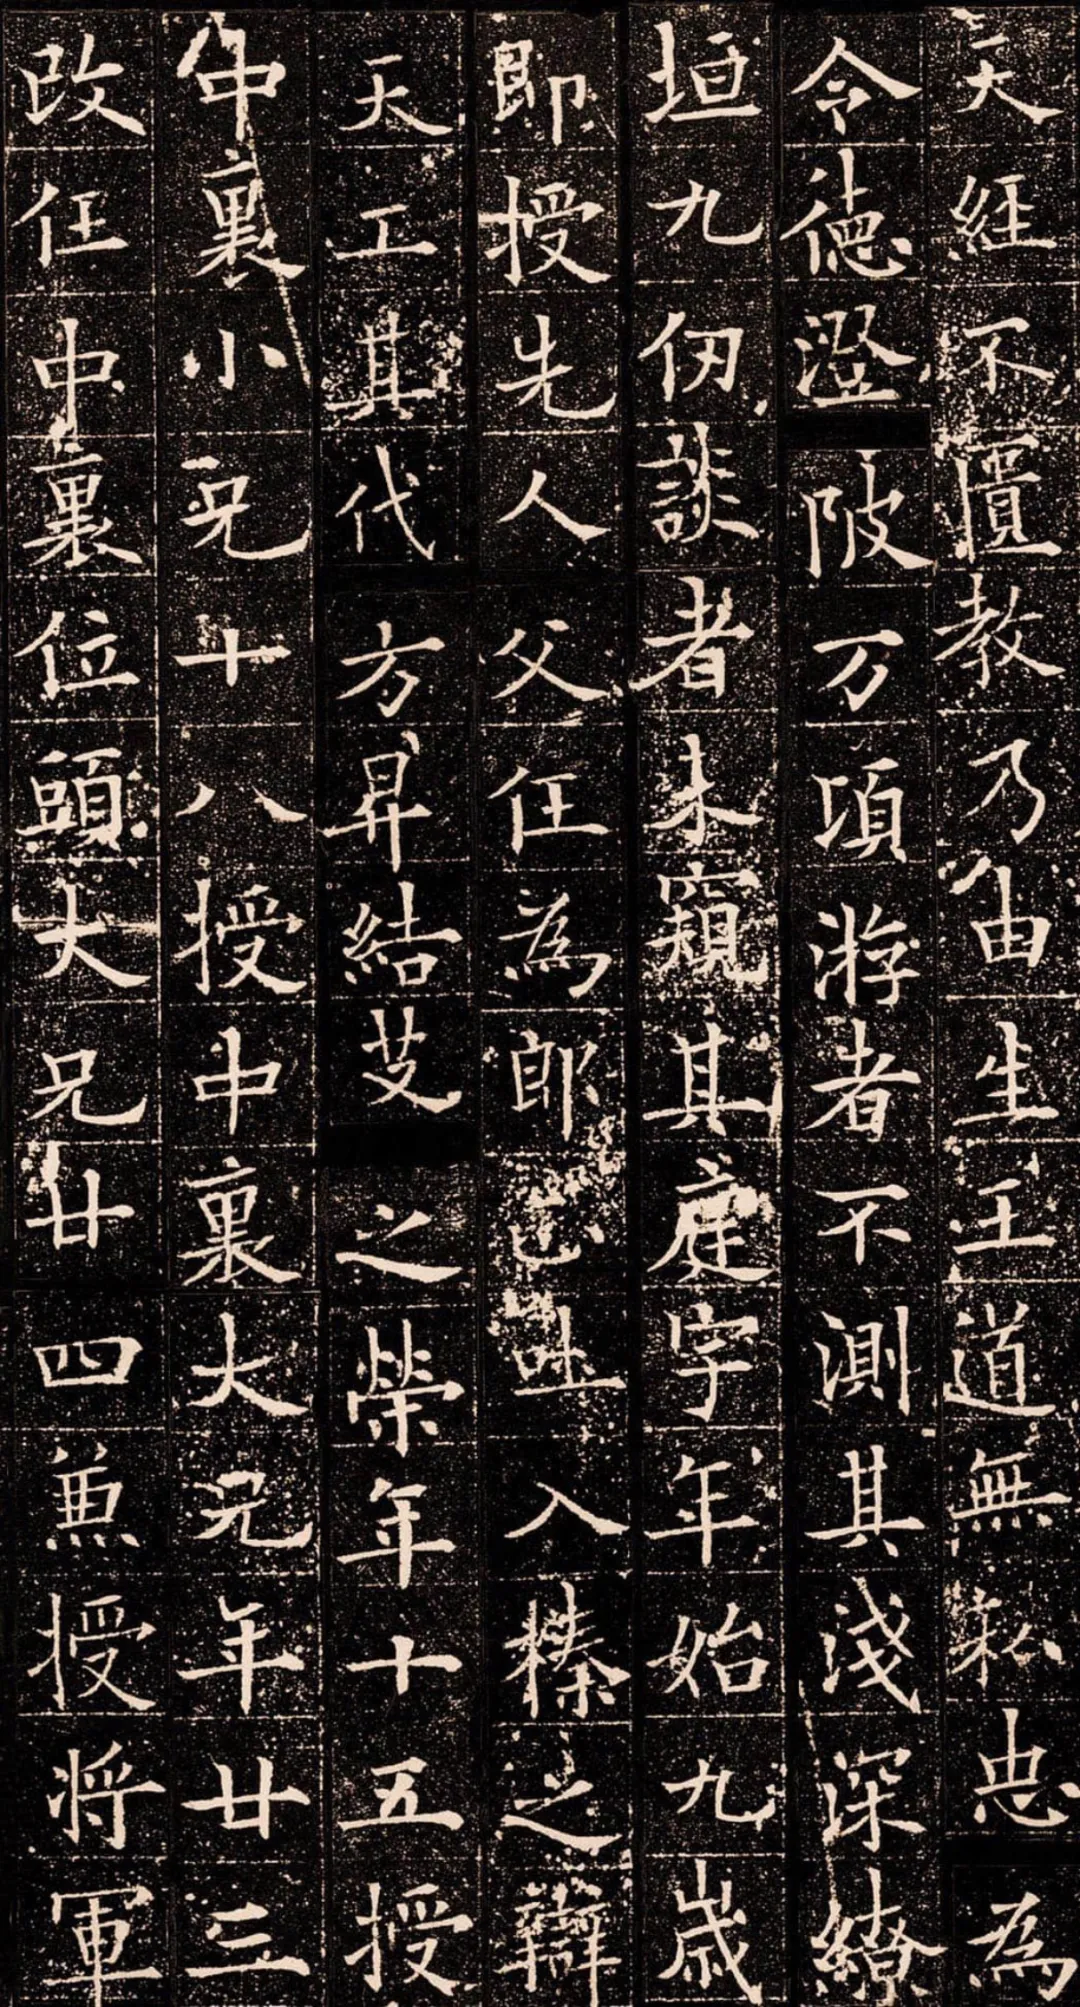 天經不匱教乃由生王道無私忠為
令德澄陂万頃游者不測其淺深繚
垣九仞談者未窺其庭宇年始九歲
即授先人父任為郎正吐入榛之辯
天工其代方昇結艾之榮年十五授
中裏小兄十八授中裏大兄年廿三
改任中裏位頭大兄廿四兼授將軍